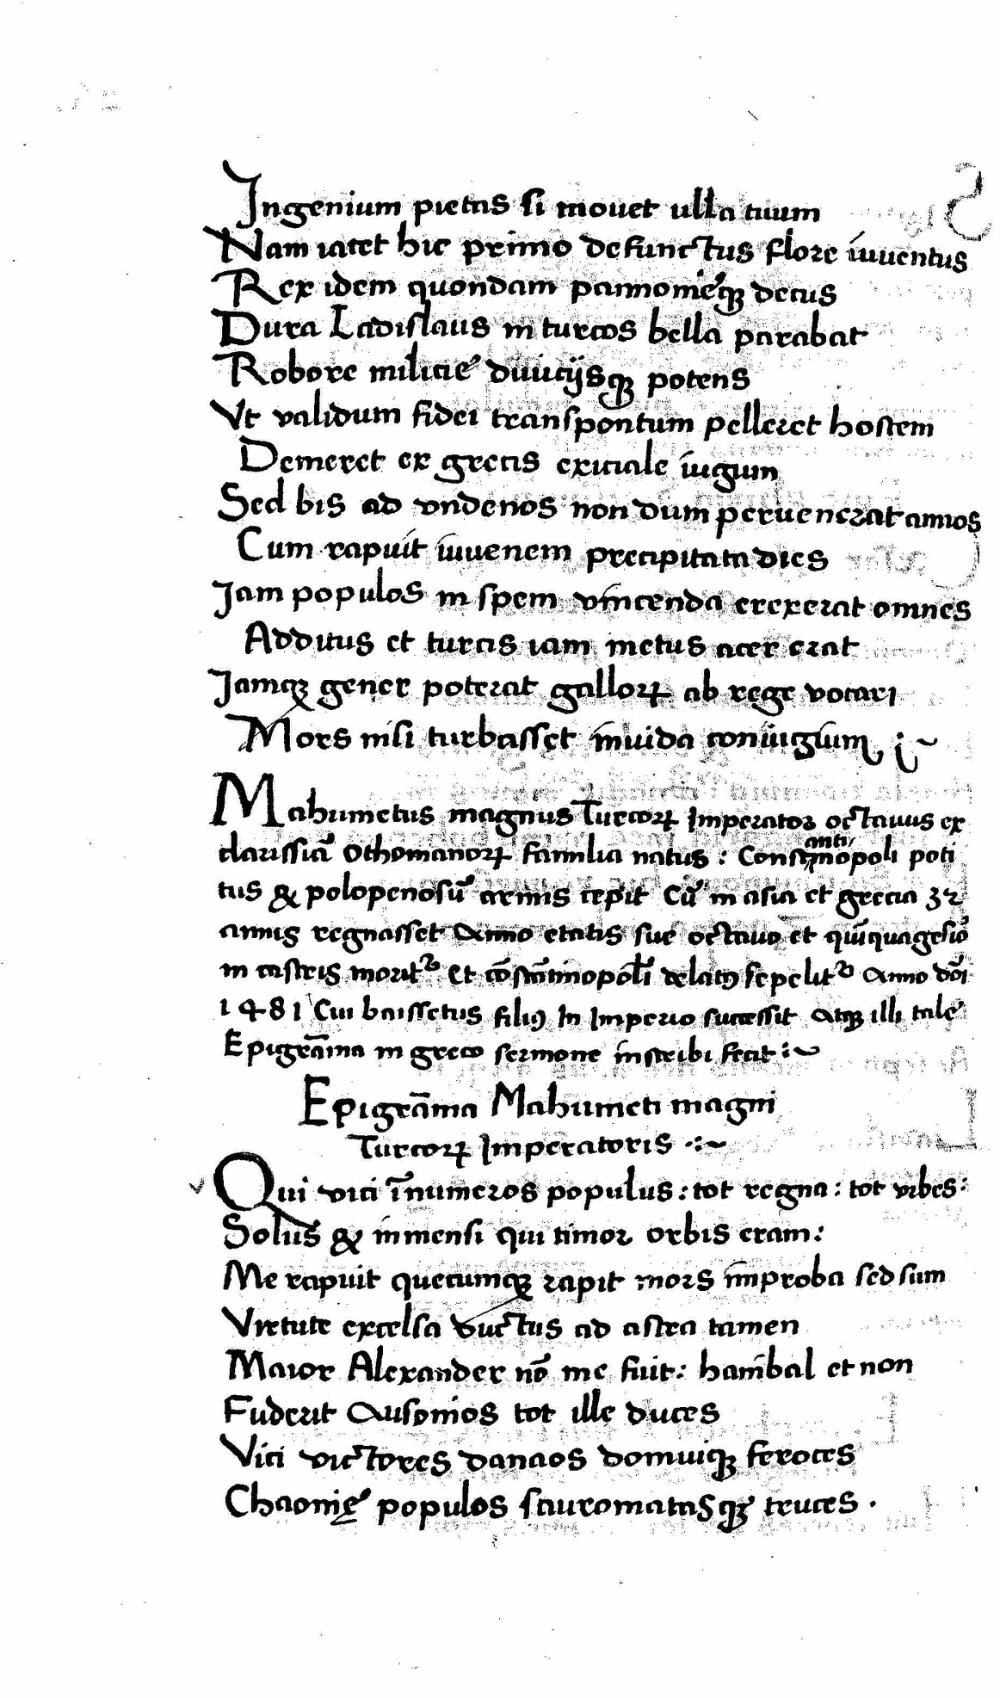 Ingenium pietas si mouet ulla tuum
Nam iacet hic primo defunctus flore iuuentus
Rex idem quondam pannonieqꝫ decus
Dura Ladislaus in turcos bella parabat
Robore militie diuitijsqꝫ potens
Vt validum fidei transpontum pelleret hostem
Demeret ex grecis exiciale iugum
Sed bis ad vndenos non dum peruenerat annos
Cum rapuit iuuenem precipitata dies
Jam populos in spem vincenda erexerat omnes
Additus et turcis iam metus acer erat
Jamqꝫ gener poterat galloꝝ ab rege vocari
Mors nisi turbasset inuida coniugium
Mahumetus magnus Turcoꝝ Imperator octauus ex
clarissiã Othomanoꝝ familia natus : Constantinopoli poti
tus & polopenosũ armis cepit Cũ in asia et grecia 32
annis regnasset Anno etatis sue octauo et quĩquagesiõ
in castris morit᷑ Et cõstãtinopoli delatꝰ sepelit᷑ Anno dõi
1481 Cui baissetus filiꝰ In Imperio successit Atqꝫ illi tale
Epigrãma in greco sermone inscribi fecit :~
Epigrãma Mahumeti magni
Turcoꝝ Imperatoris ·:~
Qui vici ĩnumeros populus : tot regna : tot vrbes :
Solus & inmensi qui timor orbis eram :
Me rapuit quecumqꝫ rapit mors improba sed sum
Virtute excelsa ductus ad astra tamen
Maior Alexander nõ me fuit : hanibal et non
Fuderit Ausonios tot ille duces
Vici victores danaos domuiqꝫ feroces
Chaonię populos sauromatasqꝫ truces .